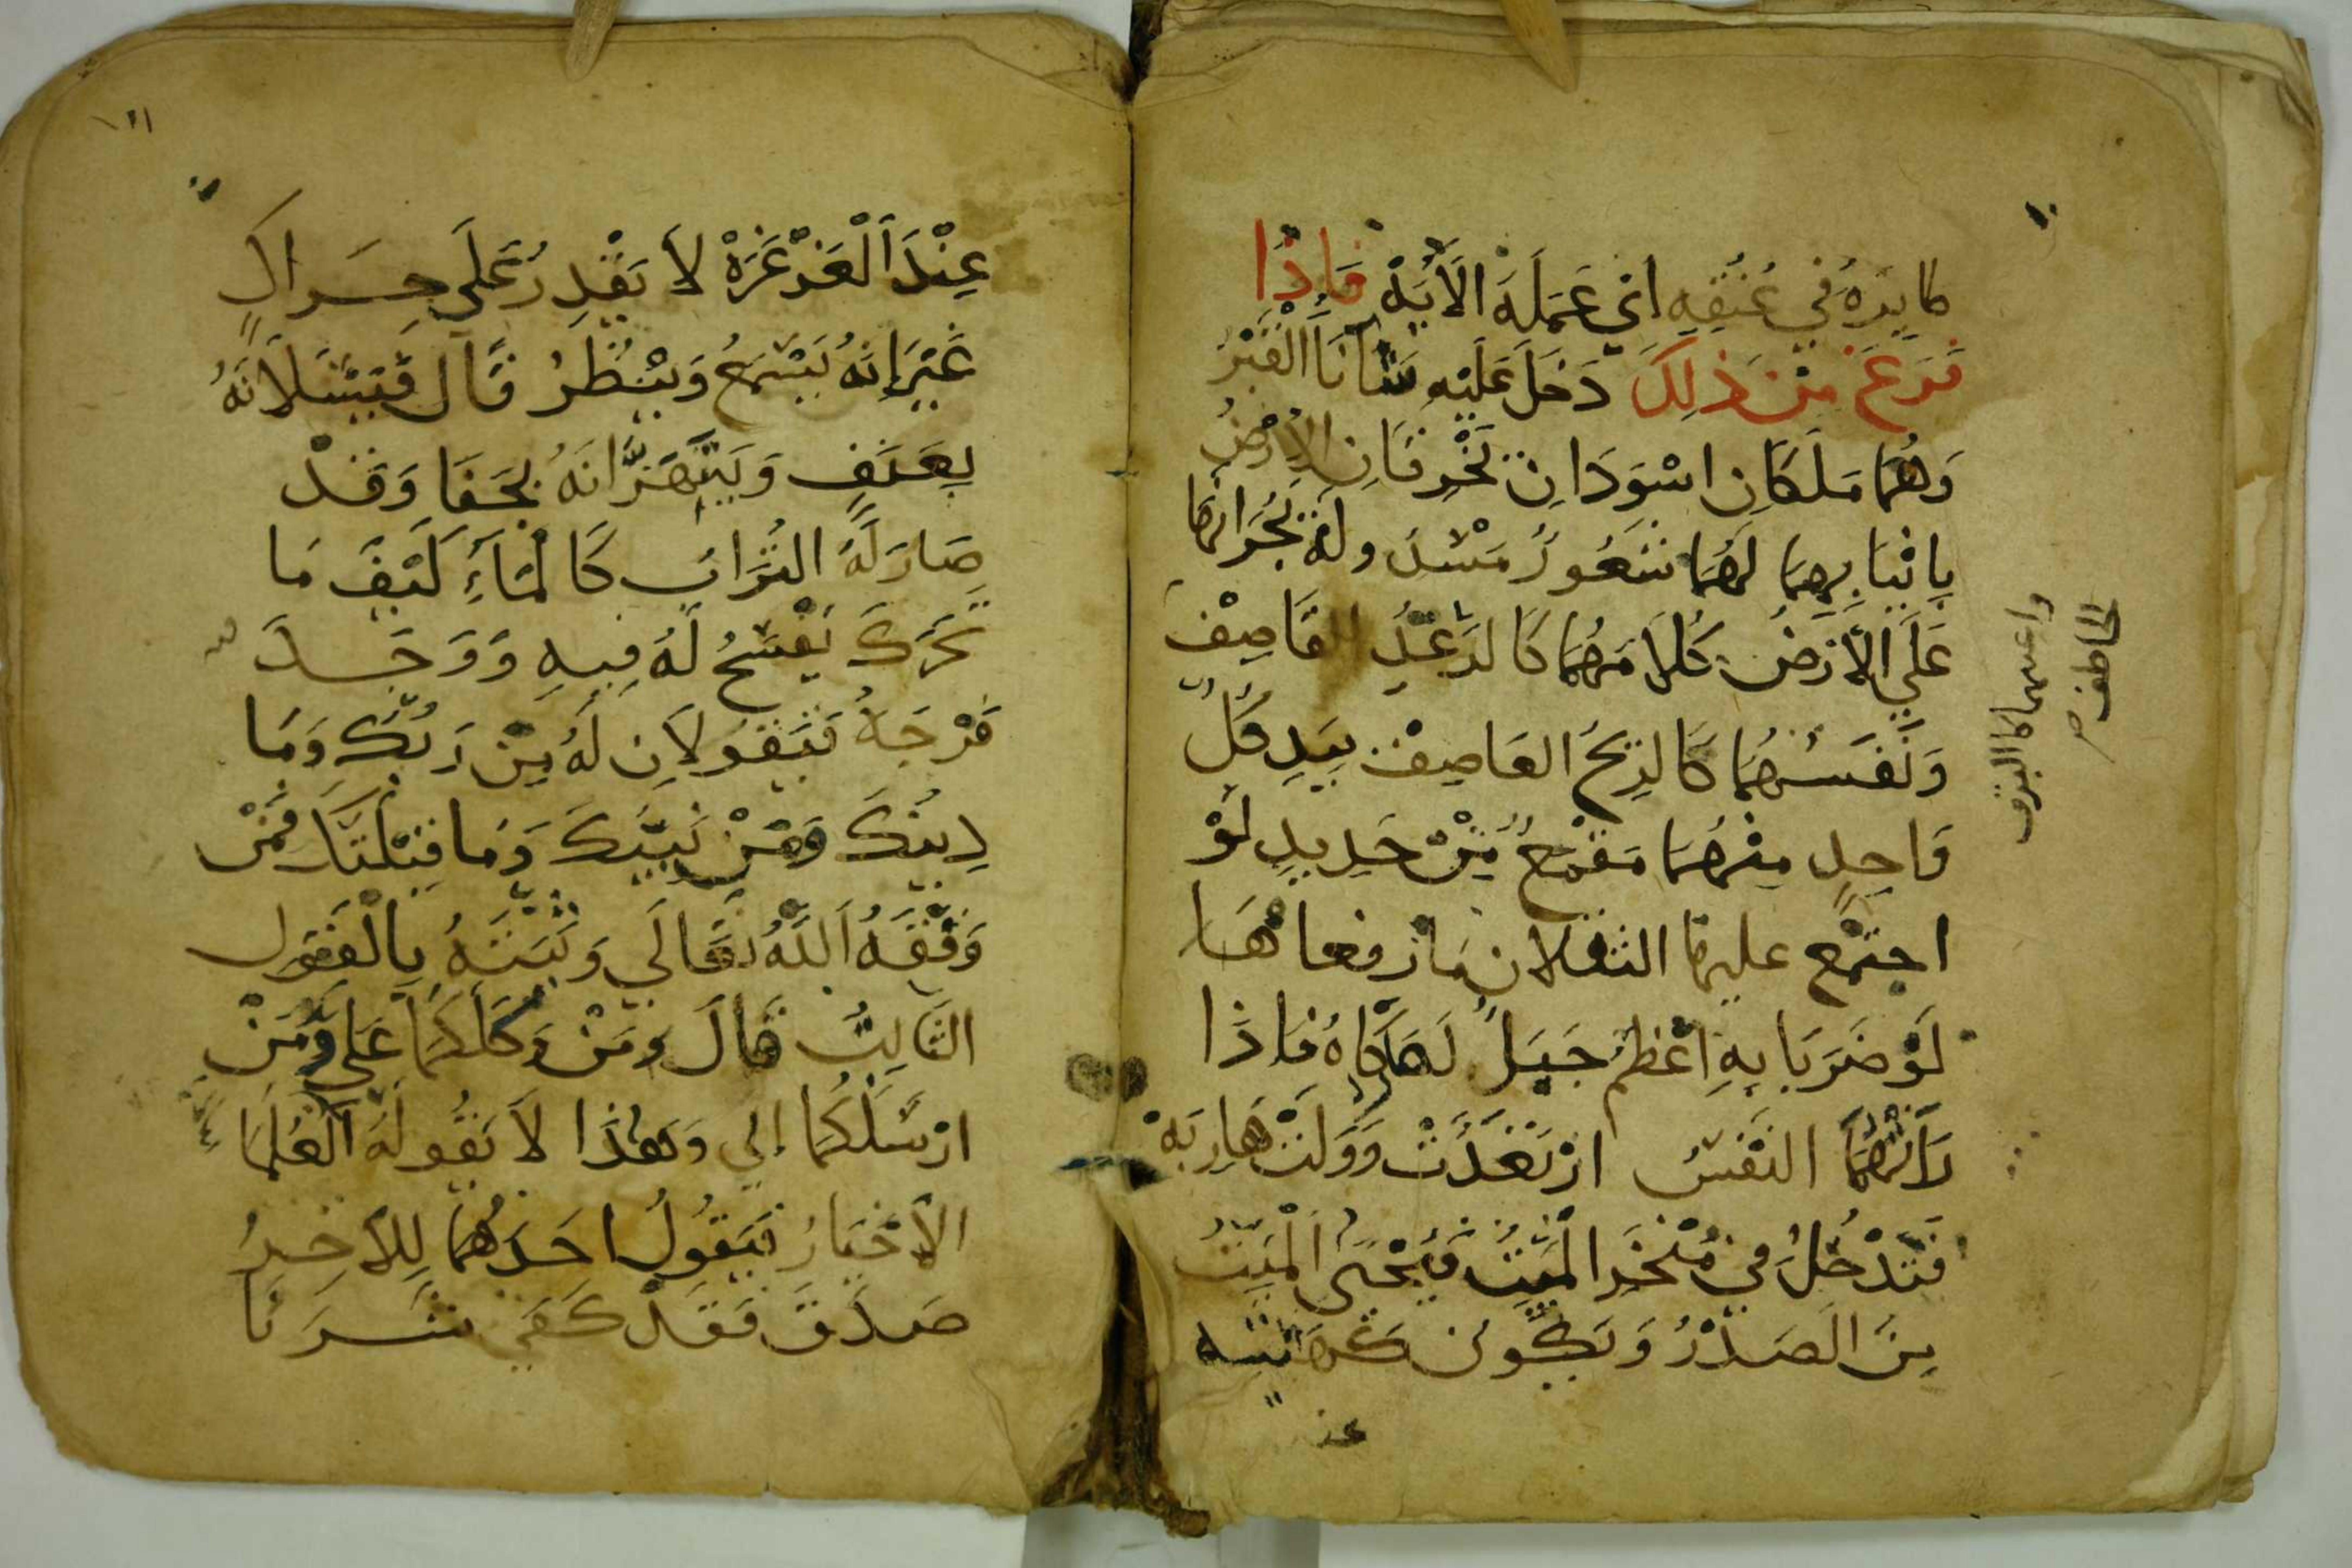 طايره في عنقه اي عمله الايه فاذا
فرغ من ذلك دخل عليه فتانا القبر
وهما ملكان اسودان يخرقان الارض
بانيابهما لهما شعور مسدوله يجرانها
على الارض كلامهما كالرعد القاصف
واعينهما كالبرق
الخاطف صح
ونفسهما كالريح العاصف بيد كل
واحد منهما مقمع من حديد لو
اجتمع عليها الثقلان ما رفعاها
لو ضربا به اعظم جبل لهداه فاذا
راتهما النفس ارتعدت وولت هاربه
فتدخل في منخر الميت فيحيى الميت
من الصدر ويكون كهيئته
عند
١١
عند الغرغرة لا يقدر على حراك
غير انه يسمع وينظر قال فيسئلانه
بعنف وينهزانه بجفا وقد
صار له التراب كالماء كيف ما
تحرك يفسح له فيه ووجد
فرجة فيقولان له من ربك وما
دينك ومن نبيك وما قبلتك فمن
وفقه الله تعالى وثبته بالقول
الثابت قال ومن وكلكما علي ومن
ارسلكما الي وهذا لا يقوله العلما
الاخيار فيقول احدهما للاخر
صدق فقد كفي شرنا